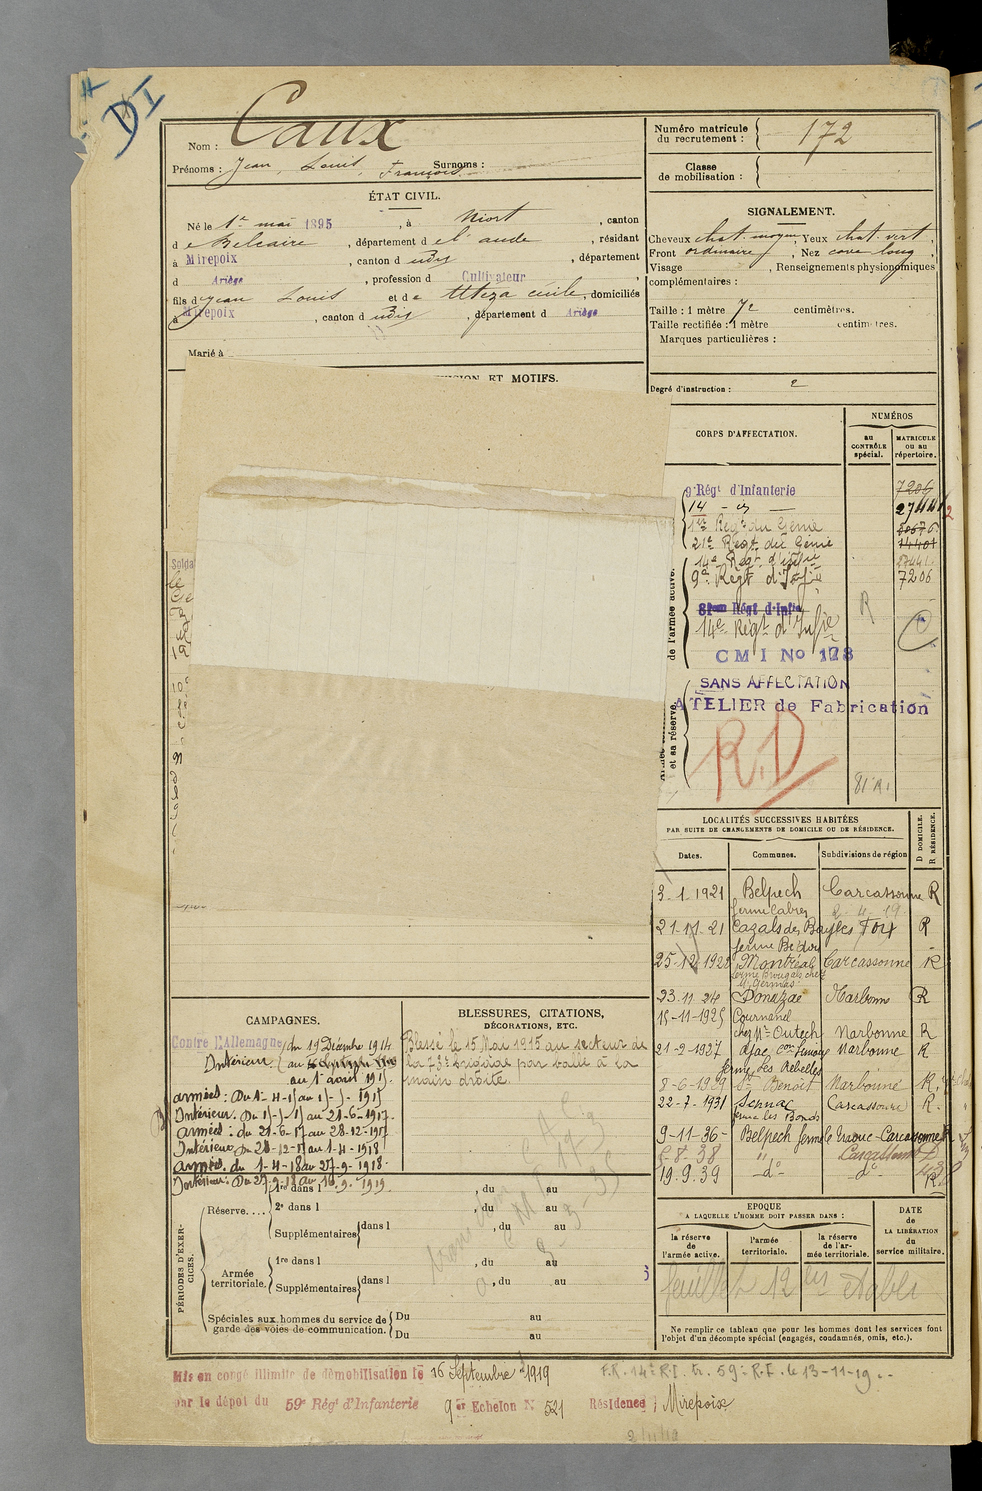 DI
Nom : Caux
Prénoms : Jean, Louis, François Surnoms :
Numéro matricule du recrutement : 172
Classe de mobilisation :
ÉTAT CIVIL.
Né le 1er mai 1895, à Niort, canton
de Belcaire, département de l'aude, résidant
à Mirepoix, canton d udis, département
d Ariège, profession d Cultivateur
fils de Jean Louis et de Uteza cecile, domiciliés
à Mirepoix, canton d udis, département d Ariège
Marié à
SIGNALEMENT.
Cheveux chat. moyen, Yeux chat. vert,
Front ordinaire, Nez cave long,
Visage , Renseignements physionomiques
complémentaires :
Taille : 1 mètre 72 centimètres.
Taille rectifiée : 1 mètre centimètres.
Marques particulières :
Degré d'instruction : 2
ET MOTIFS.
CORPS D'AFFECTATION.
NUMÉROS
au CONTRÔLE spécial.
MATRICULE ou au répertoire.
9e Régt d'Infanterie 7206
14 - id - 27441
1er Régt du Génie
21e Régt du Génie 14401
14e Régt d'infie
9e Régt d'Infie 7206
81eme Régt d'Infie
14e Régt d'Infie
R
CMI No 178
SANS AFFECTATION
ATELIER de Fabrication
R.D
de l'armée active.
et sa réserve.
Solda
LOCALITÉS SUCCESSIVES HABITÉES
PAR SUITE DE CHANGEMENTS DE DOMICILE OU DE RÉSIDENCE.
Dates. Communes. Subdivisions de région D DOMICILE. R RÉSIDENCE.
3-1-1921 Belpech Carcassonne R
ferme Cabrez
21-11-21 Cazals des Bayles Foix R
25-12-1922 Montréal Carcassonne R
23-11-24 Donazac Narbonne R
15-11-1925 Cournanel
chez Mr Outech Narbonne R
21-2-1927 Ajac con Limoux Narbonne R
ferme des Rebelles
8-6-1929 St Benoit Narbonne R
22-7-1931 Sonnac Carcassonne R
ferme les Bonds
9-11-36- Belpech ferme Carcassonne R
8.8.38 " Carcassonne
19.9.39 -do- -do- R
CAMPAGNES.
Contre l'Allemagne du 19 Décembre 1914
Intérieur au
au 1er avril 191
armées : Du 1-4-1 au 1
Intérieur. Du au 21-6-1917.
armées : du 21-6-17 au 28-12-1917
Intérieur Du 28-12-17 au 1-4-1918
armées. du 1-4-18 au 27-9-1918.
Intérieur. Du 27-9-18 au 16.9.1919
BLESSURES, CITATIONS,
DÉCORATIONS, ETC.
Blessé le 15 Mai 1915 au secteur de
la 73e brigade par balle à la
main droite.
PÉRIODES D'EXERCICES.
Réserve.... 1re dans l , du au
2e dans l , du au
Supplémentaires dans l , du au
Armée territoriale. 1re dans l , du au
Supplémentaires dans l , du au
Spéciales aux hommes du service de garde des voies de communication. Du au
Du au
EPOQUE
A LAQUELLE L'HOMME DOIT PASSER DANS :
la réserve de l'armée active.
l'armée territoriale.
la réserve de l'armée territoriale.
DATE de LA LIBÉRATION du service militaire.
feuillet 12 établi
Ne remplir ce tableau que pour les hommes dont les services font
l'objet d'un décompte spécial (engagés, condamnés, omis, etc.).
Mis en congé illimité de démobilisation le 16 Septembre 1919
par le dépot du 59e Régt d'Infanterie 9e Echelon N° 521 Résidence Mirepoix
F.R. 14e R.I. tr. 59e R.I. le 13-11-19.